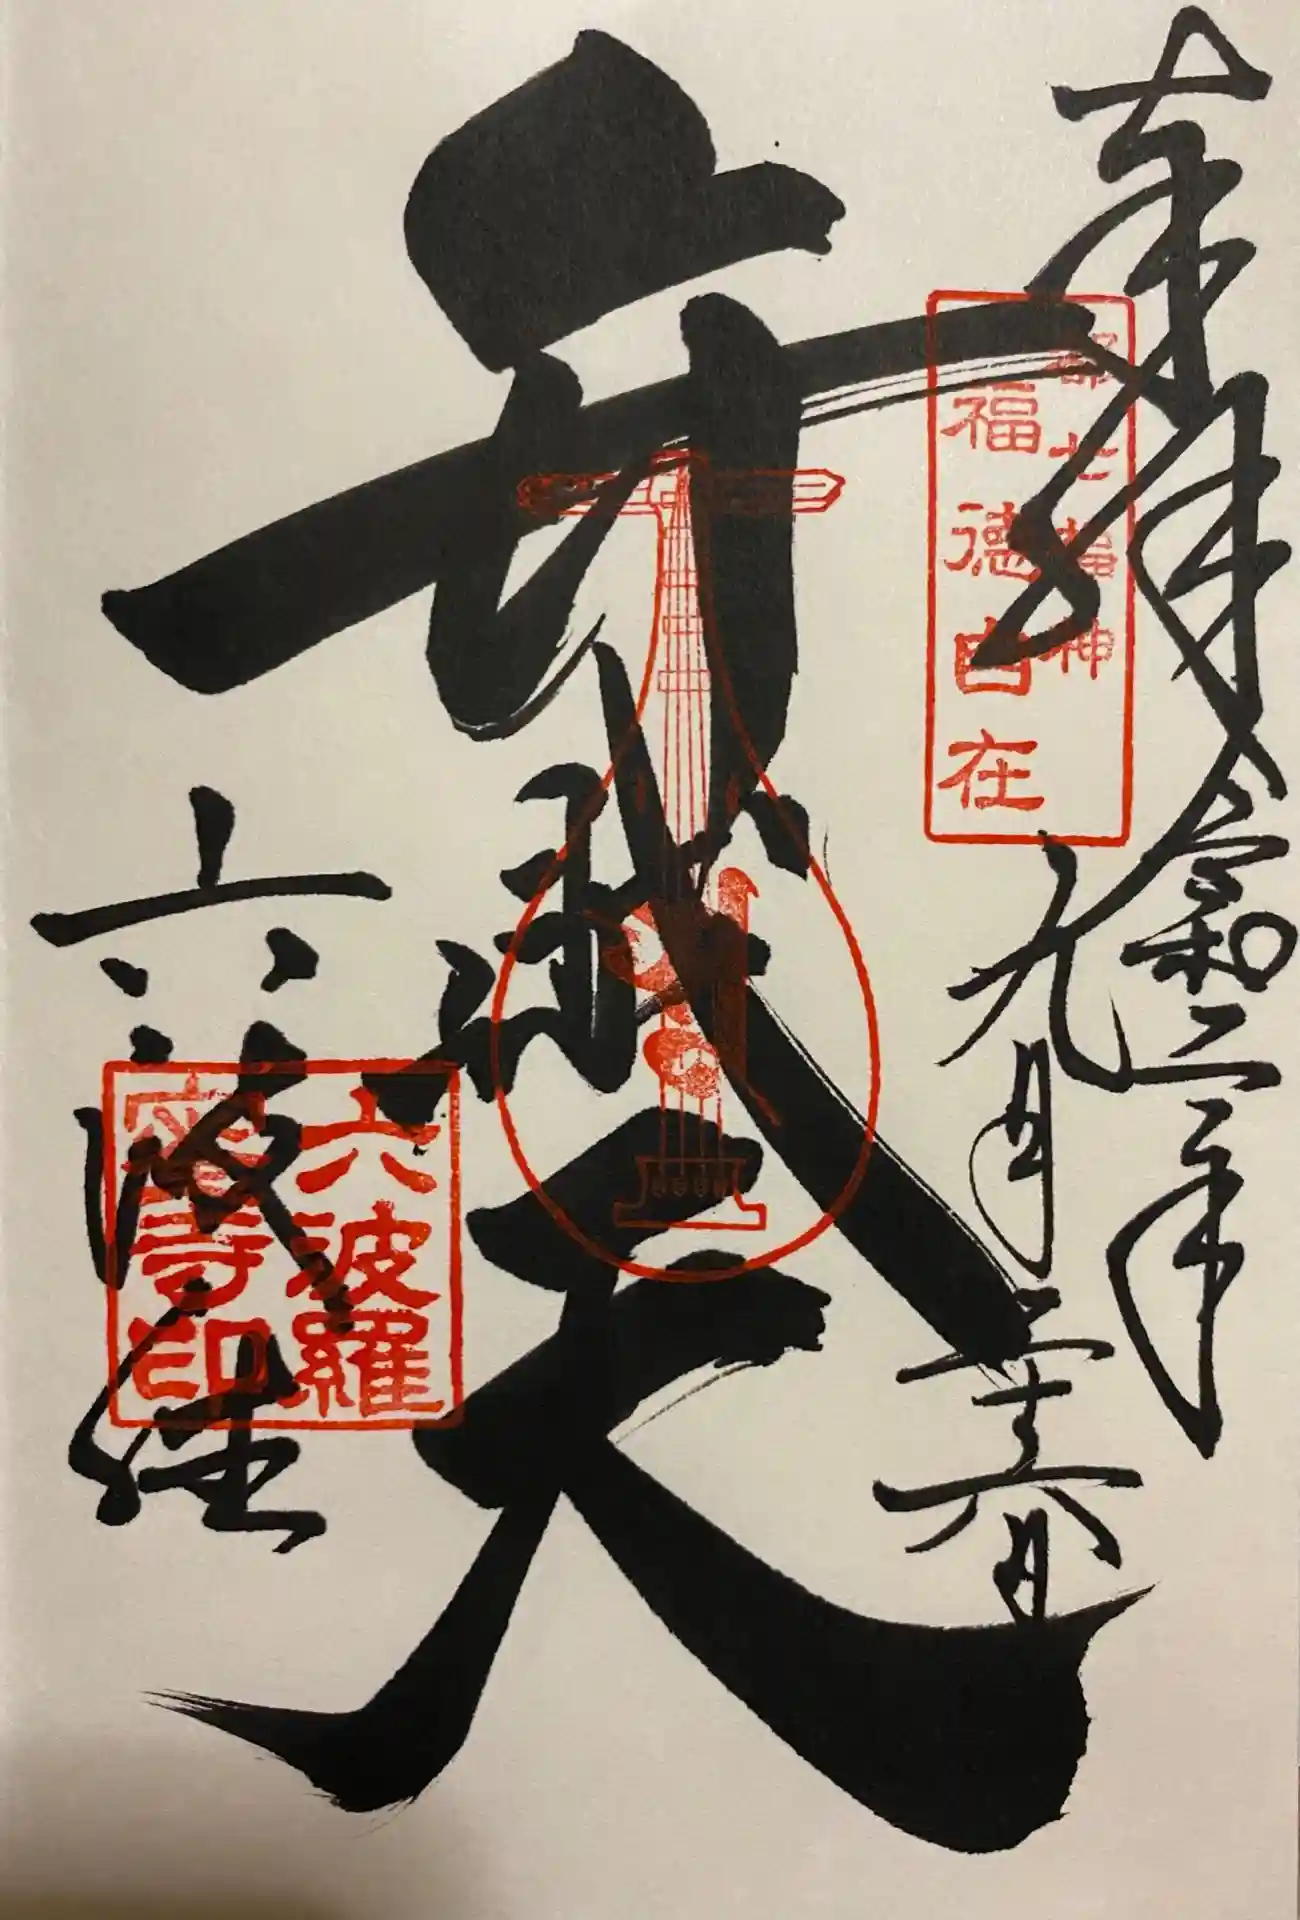 奉拝
令和二年
九月二十六日
都七福神
福徳自在
弁財天
六波羅
密寺印
六波羅